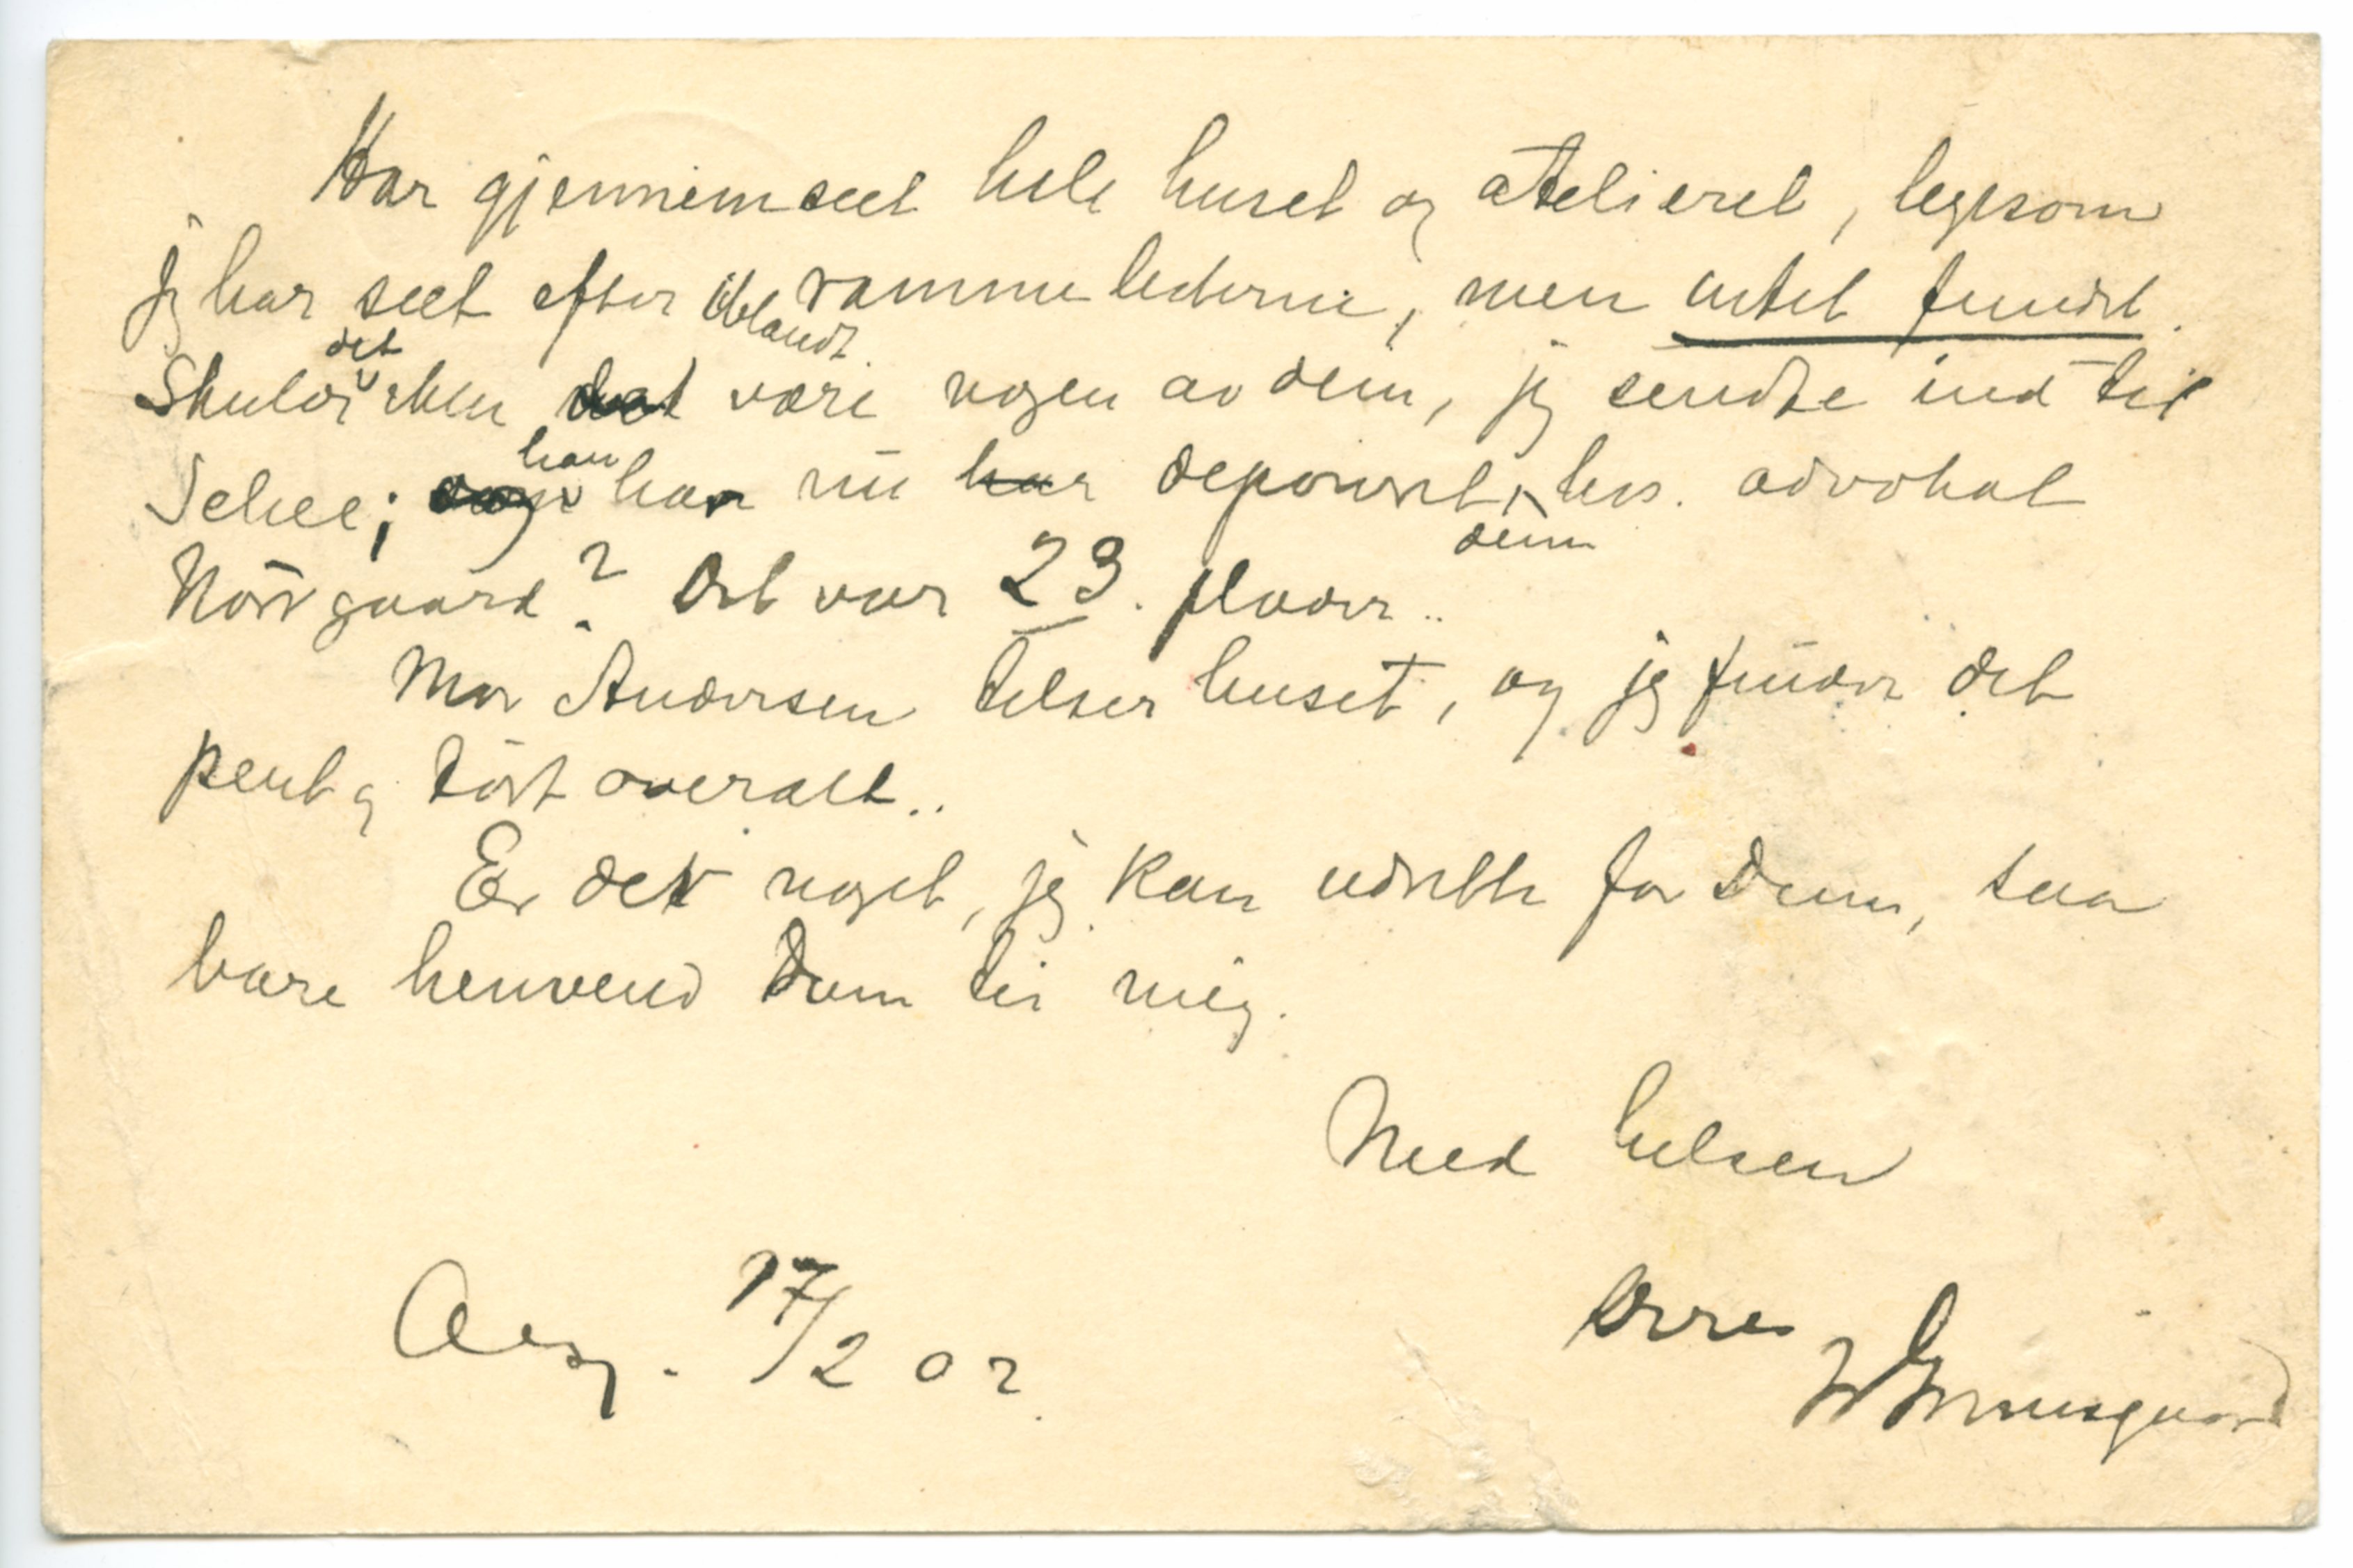 Har gjennemseet hele huset og atelieret, ligesom
jeg har seet efter iblandt rammelisterne, men intet fundet.
Skulde det ikke være nogen av dem, jeg sendte ind til
Schee; han har nu deponeret dem hos. advokat
Nörregaard? Det var 23. plader..
Mor Andersen tilser huset, og jeg finder det
pent og tört overalt..
Er det noget, jeg kan udrette for Dem, saa
bare henvend Dem til mig.
Med hilsen
Aasg. 17/2 02.
Deres